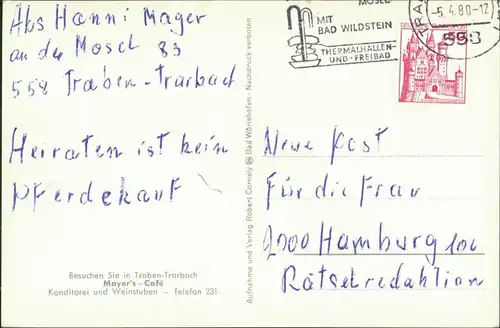 Abs Hanni Mager
an der Mosel 83
558 Traben-Trarbach
Heiraten ist kein
Pferdekauf
Besuchen Sie in Traben-Trarbach
Mayer's-Café
Konditorei und Weinstuben – Telefon 231
Aufnahme und Verlag Robert Comely Bad Wörishofen - Nachdruck verboten
MOSEL
MIT
BAD WILDSTEIN
THERMALHALLEN-
UND-FREIBAD
-5.4.80-12
Neue Post
Für die Frau
2000 Hamburg 100
Rätselredaktion